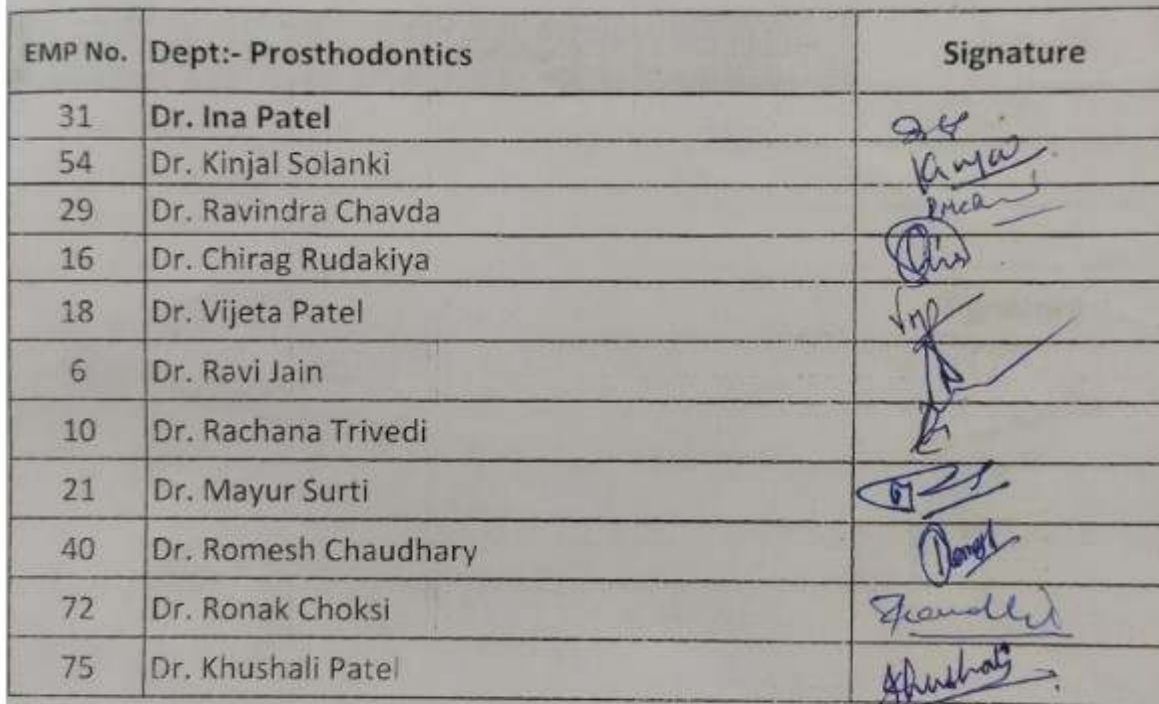 EMP No. Dept:- Prosthodontics Signature
31 Dr. Ina Patel
54 Dr. Kinjal Solanki Kinjal
29 Dr. Ravindra Chavda
16 Dr. Chirag Rudakiya
18 Dr. Vijeta Patel
6 Dr. Ravi Jain
10 Dr. Rachana Trivedi
21 Dr. Mayur Surti
40 Dr. Romesh Chaudhary
72 Dr. Ronak Choksi
75 Dr. Khushali Patel Khushali